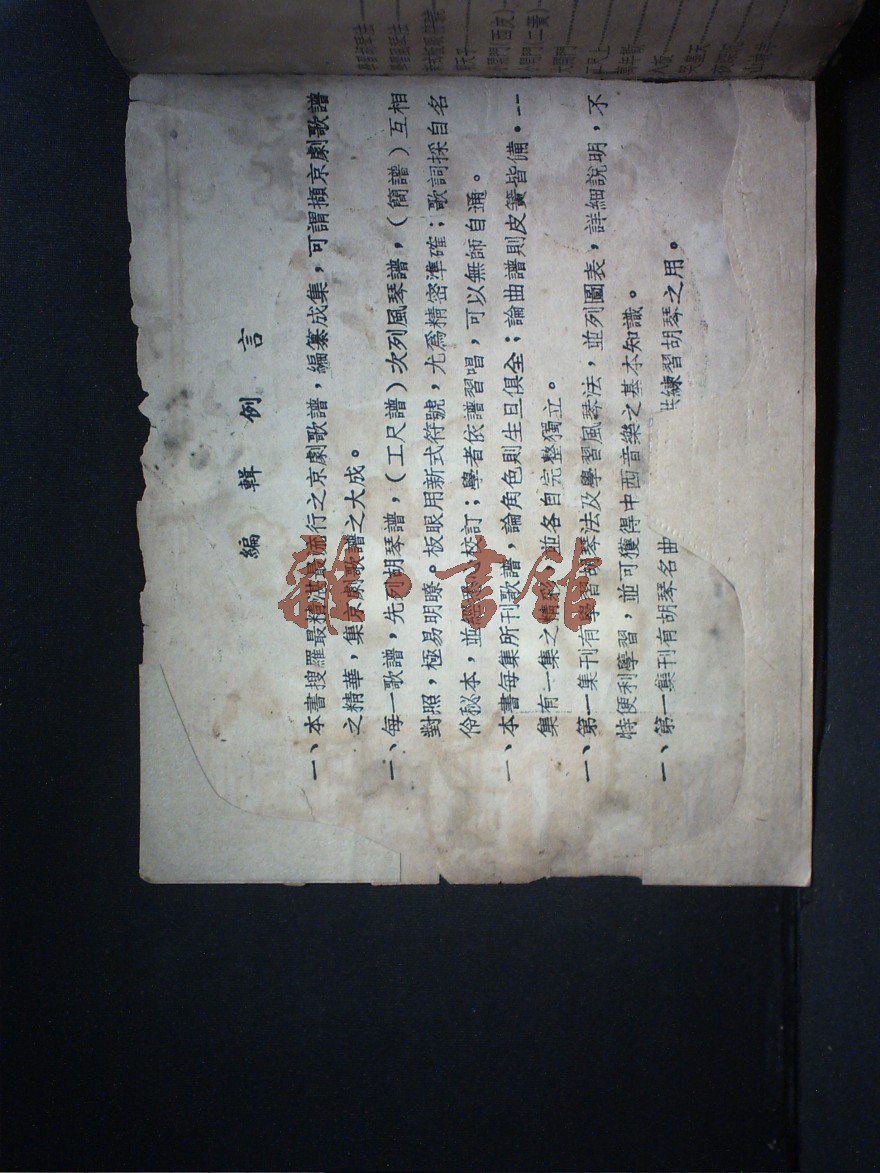 編輯例言
一、本書搜羅最精湛最流行之京劇歌譜，編纂成集，可謂擷京劇歌譜
之精華，集京劇歌譜之大成。
一、每一歌譜，先列胡琴譜，（工尺譜）次列風琴譜，（簡譜）互相
對照，極易明瞭。板眼用新式符號，尤爲精密準確；歌詞採自名
伶秘本，並經校訂；學者依譜習唱，可以無師自通。
一、本書每集所刊歌譜，論角色則生旦俱全；論曲譜則皮簧皆備。一
集有一集之精彩，並各自完整獨立。
一、第一集刊有學習胡琴法及學習風琴法，並列圖表，詳細說明，不
特便利學習，並可獲得中西音樂之基本知識。
一、第一集刊有胡琴名曲 練習胡琴之用。